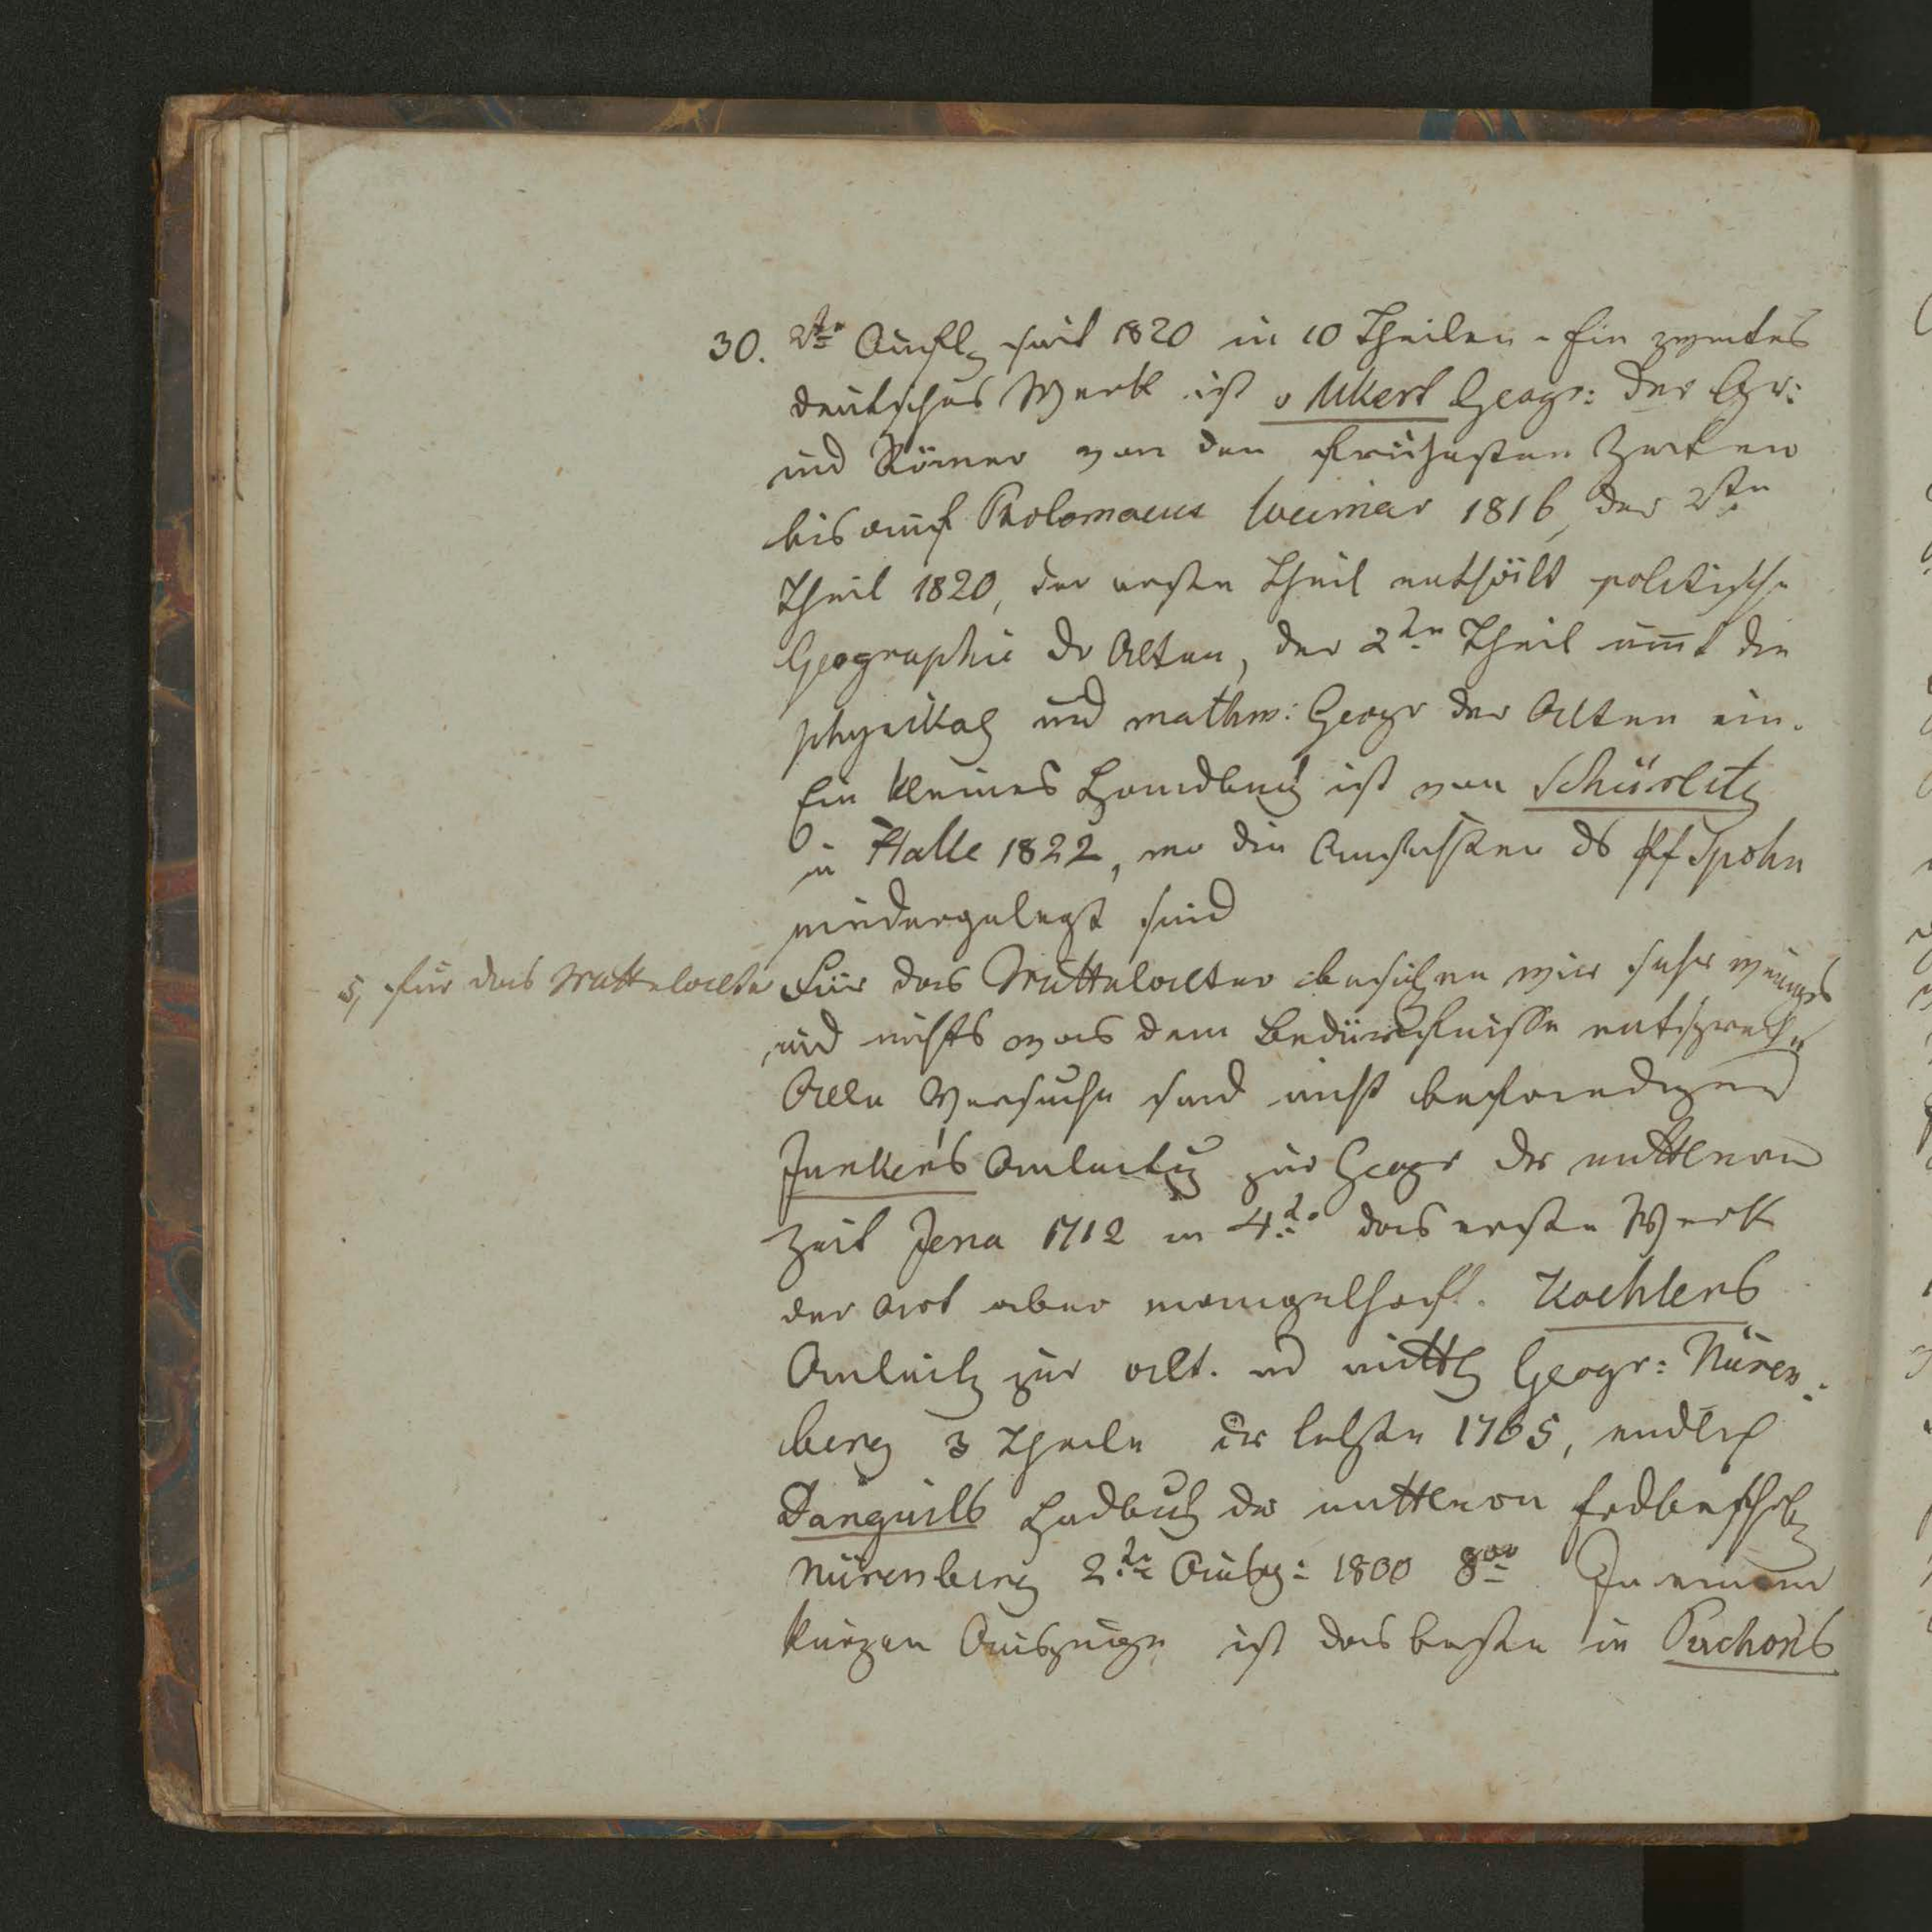 30. 2te Aufl seit 1820 in 10 Theilen - Ein zweites
deutsches Werk ist v Ukert Geogr: der Gr:
und Römer von den frühesten Zeiten
bis auf Ptolomaeus Weimar 1816, der 2te
Theil 1820, der erste Theil enthält politische
Geographie der Alten, der 2te Theil nimt die
physikal und mathm: Geogr der Alten ein.
Ein kleines Handbuch ist von Schürlitz
in Halle 1822, wo die Ansichten ds Pf Spohn
niedergelegt sind
5, für das Mittelalter
Für das Mittelalter besitzen wir sehr weniges
und nichts was dem Bedürfnisse entsprech
Alle Versuche sind nicht befriedigend
Junker's Anleitung zur Geogr der mittleren
Zeit Jena 1712 in 4to das erste Werk
der Art aber mangelhaft. Koehlers
Anleitg zur alt. und mittl Geogr: Nüren-
berg 3 Theile der letzte 1765, endlich
Danquills Handbuch der mittleren Erdbeschrbg
Nürenberg 2te Ausg: 1800 8vo In einem
kurzen Auszuge ist das beste in